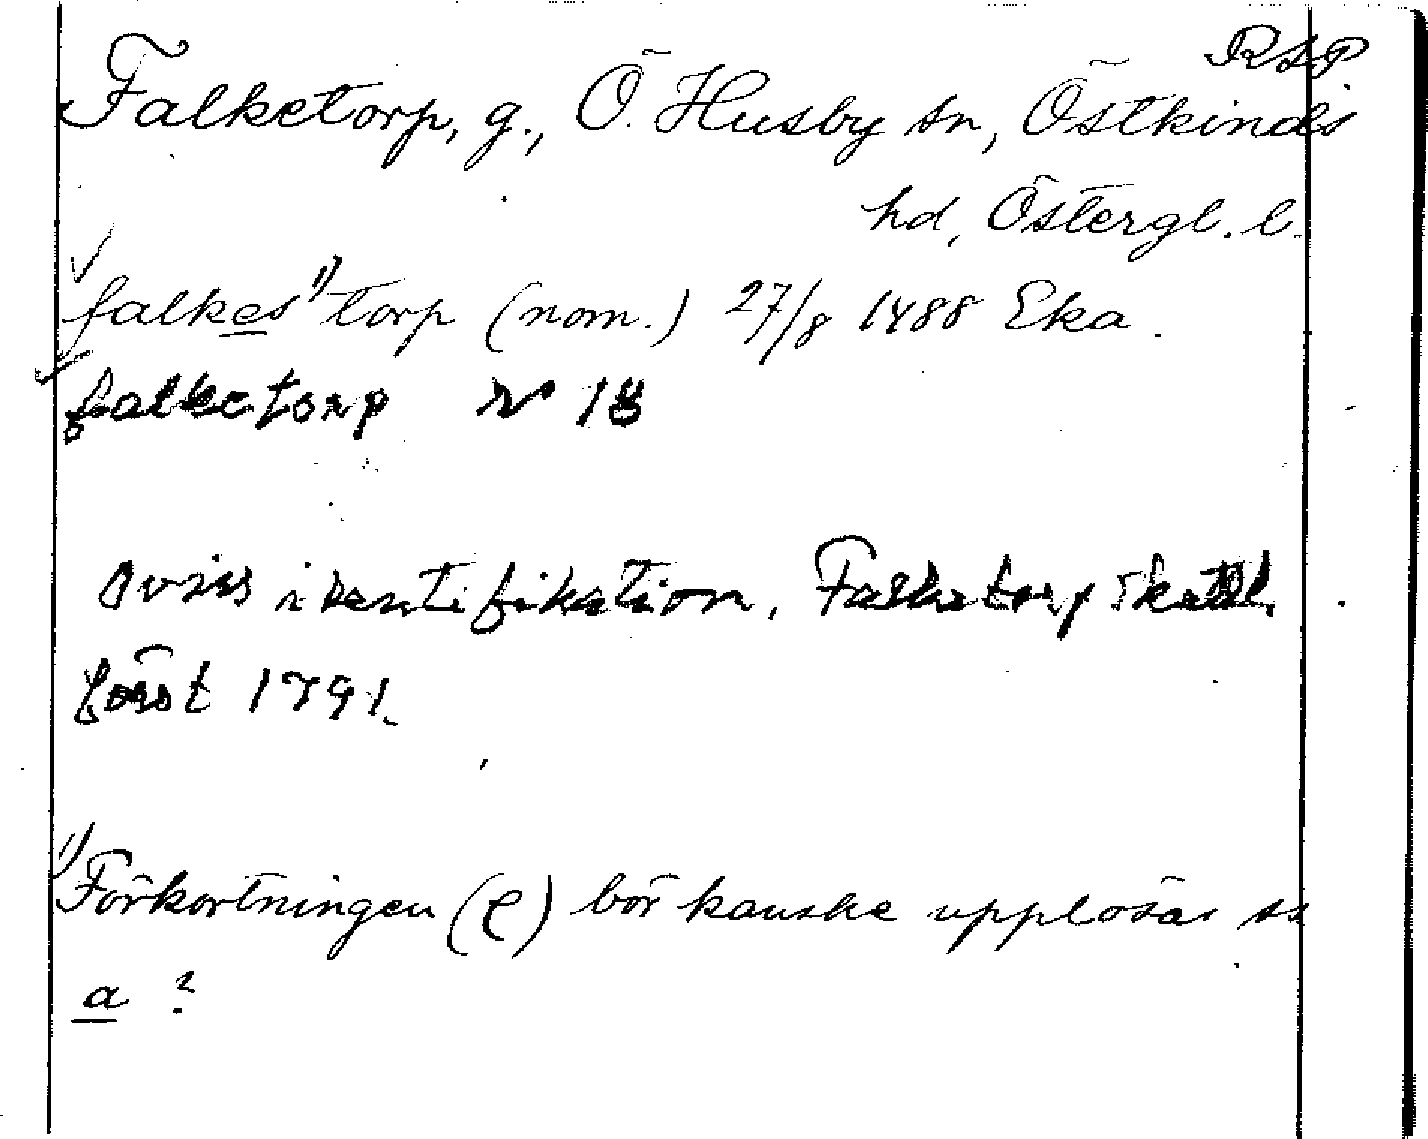 RSP
Falketorp, g., Ö. Husby sn, Östkinds
hd, Östergl. l.
falkes¹⁾ torp (nom.) 27/8 1488 Eka.
falketorp
Oviss identifikation, Falketorp skattl.
först 1791.
¹⁾ Förkortningen (ҽ) bör kanske upplösas ss
a ?